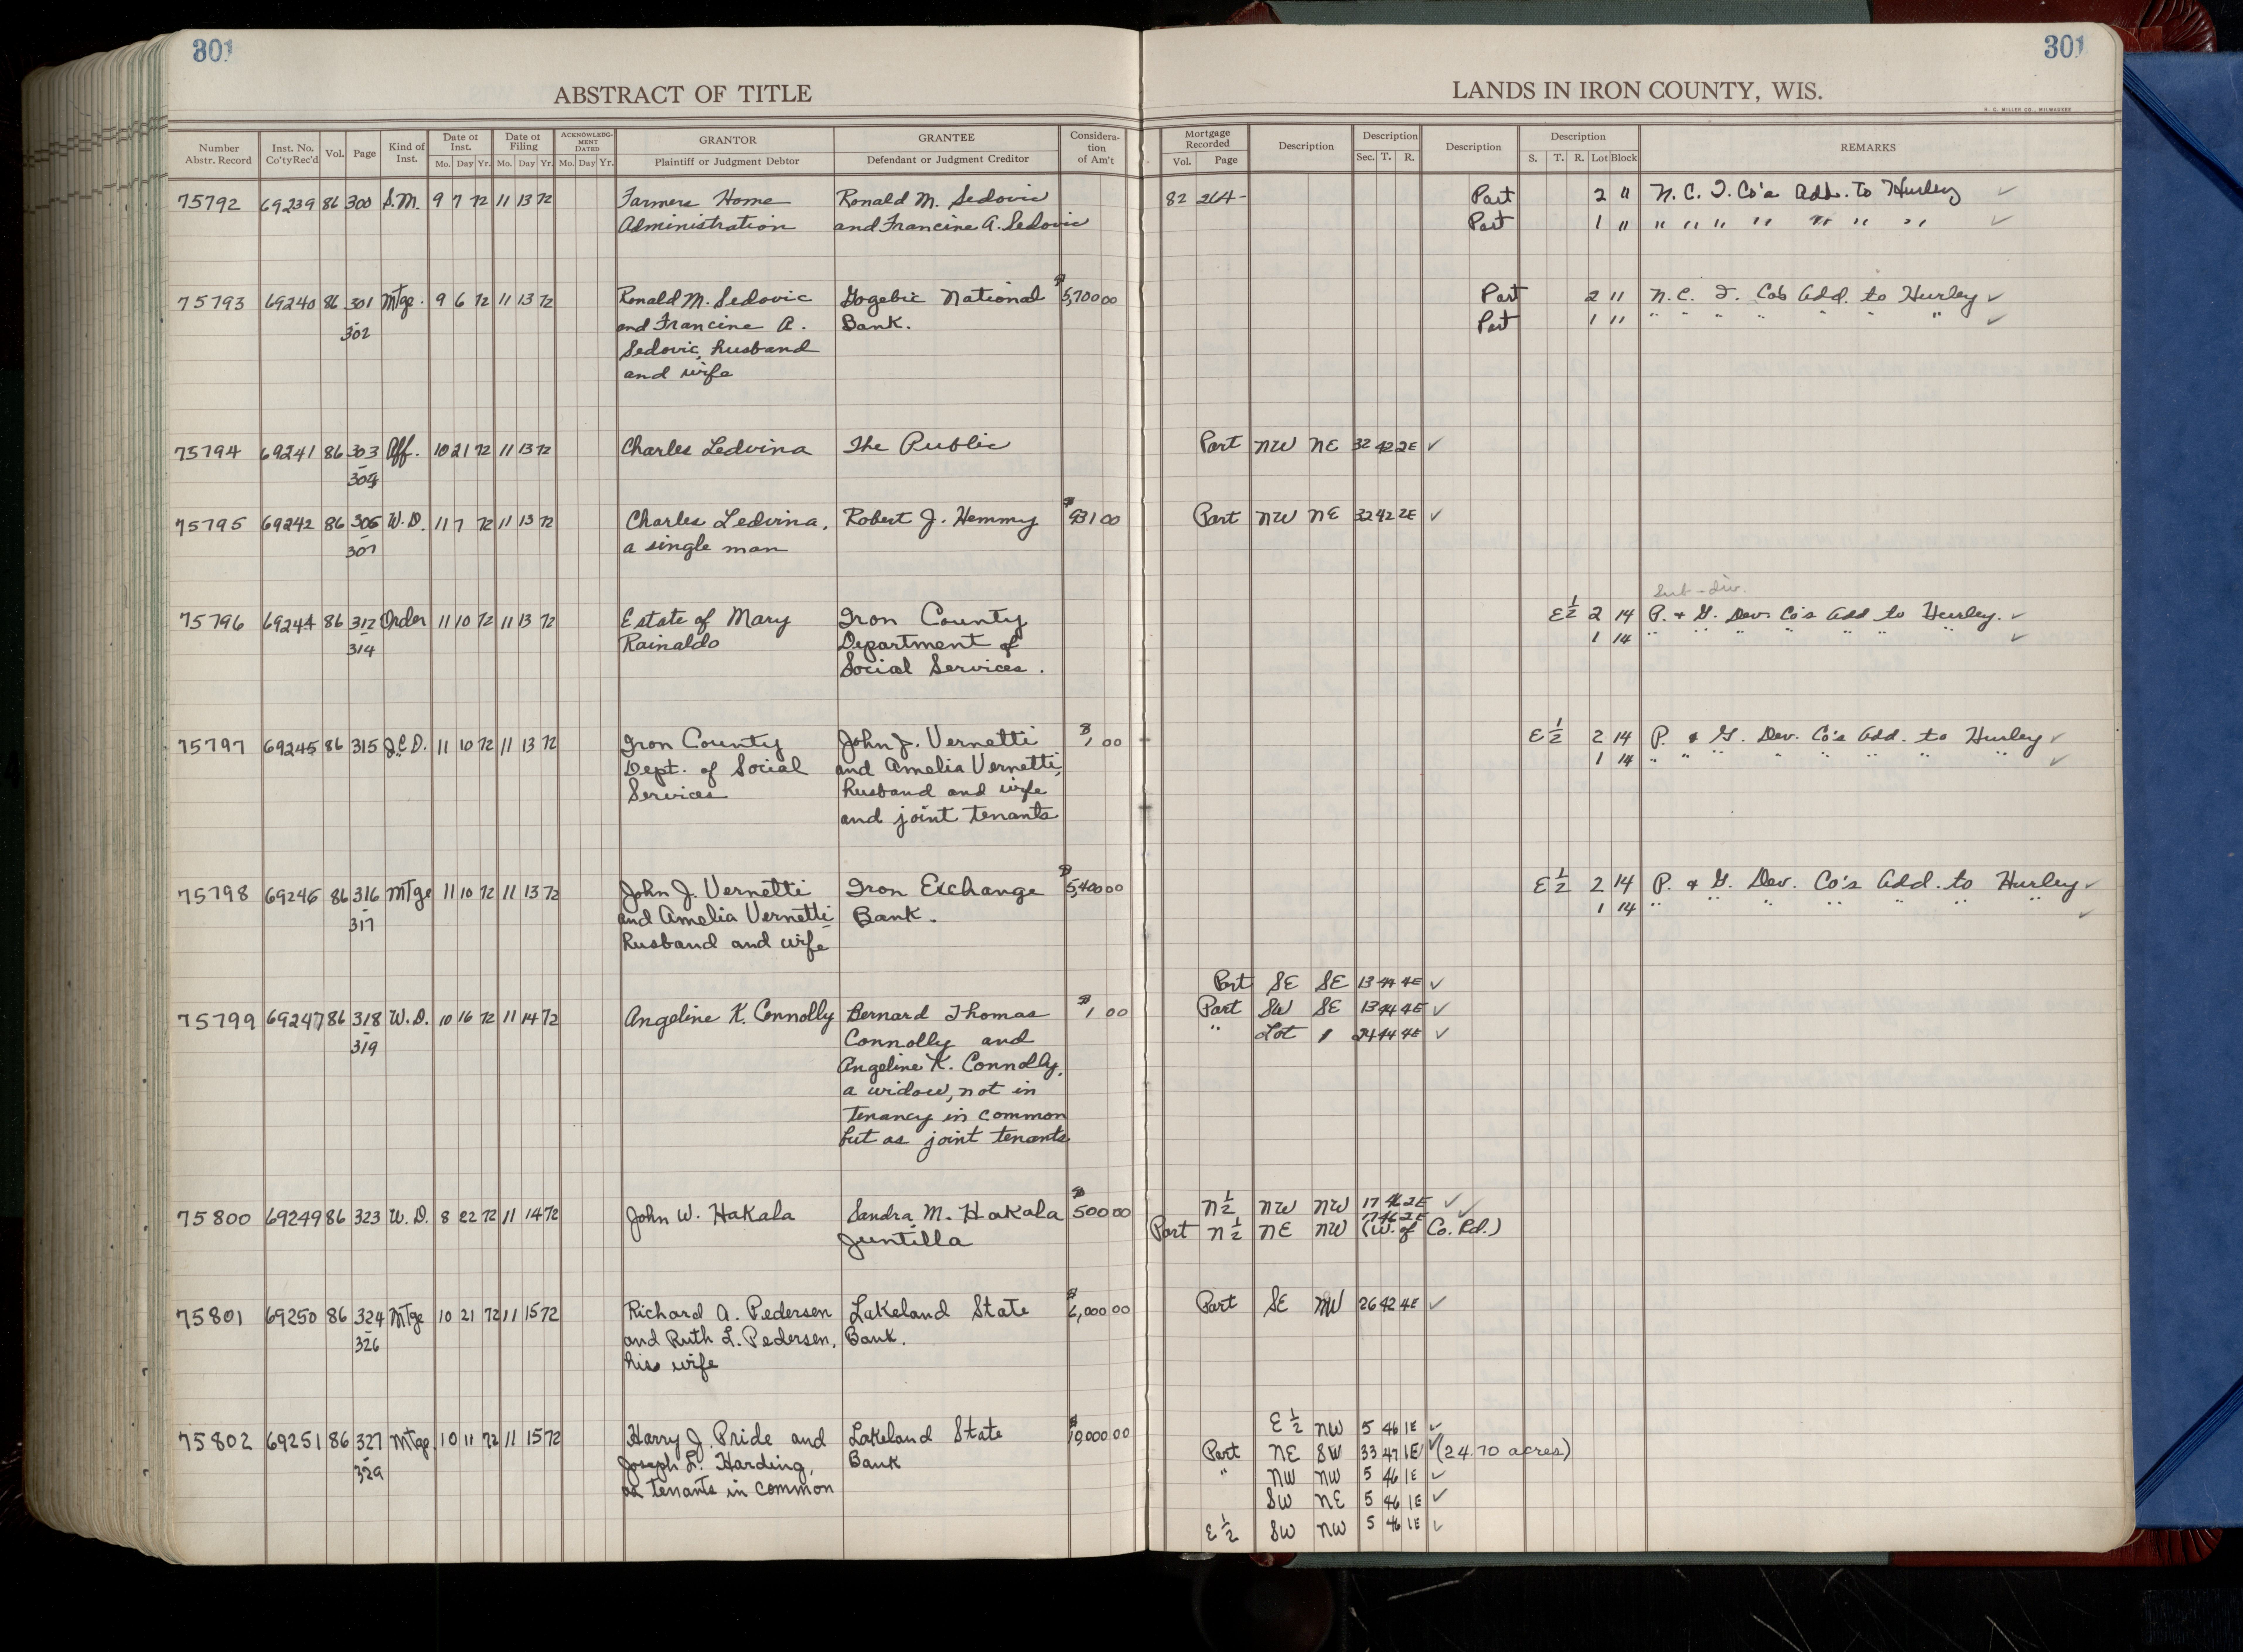 301
301
ABSTRACT OF TITLE
LANDS IN IRON COUNTY, WIS.
R. C. MILLER CO., MILWAUKEE
Number Abstr. Record Inst. No. Co'ty Rec'd Vol. Page Kind of Inst. Date of Inst. Mo. Day Yr. Date of Filing Mo. Day Yr. ACKNOWLEDGMENT DATED Mo. Day Yr. GRANTOR Plaintiff or Judgment Debtor GRANTEE Defendant or Judgment Creditor Consideration of Am't
Mortgage Recorded Vol. Page Description Description Sec. T. R. Description Description S. T. R. Lot Block REMARKS
75792 69239 86 300 S.M. 9 7 72 11 13 72 Farmers Home Ronald M. Sedovic 82 264- Part 2 11 N. C. I. Co's Add. to Hurley ✓
Administration and Francine A. Sedovic Part 1 11 " " " " " " " ✓
75793 69240 86 301 Mtge. 9 6 72 11 13 72 Ronald M. Sedovic Gogebic National $5,700 00 Part 2 11 N. C. I. Co's Add. to Hurley ✓
- 302 and Francine A. Bank. Part 1 11 " " " " " " " ✓
Sedovic, husband
and wife
75794 69241 86 303 Aff. 10 21 72 11 13 72 Charles Ledvina The Public Part NW NE 32 42 2E ✓
- 304
75795 69242 86 305 W.D. 11 7 72 11 13 72 Charles Ledvina, Robert J. Hemmy $931 00 Part NW NE 32 42 2E ✓
- 307 a single man
Sub-div.
75796 69244 86 312 Order 11 10 72 11 13 72 Estate of Mary Iron County E½ 2 14 P. & G. Dev. Co's Add to Hurley. ✓
- 314 Rainaldo Department of 1 14 " " " " " " " ✓
Social Services.
75797 69245 86 315 J.C.D. 11 10 72 11 13 72 Iron County John J. Vernetti $1 00 E½ 2 14 P. & G. Dev. Co's Add. to Hurley ✓
Dept. of Social and Amelia Vernetti, 1 14 " " " " " " " ✓
Services husband and wife
and joint tenants
75798 69246 86 316 Mtge 11 10 72 11 13 72 John J. Vernetti Iron Exchange $5,400 00 E½ 2 14 P. & G. Dev. Co's Add. to Hurley ✓
- 317 and Amelia Vernetti Bank. 1 14 " " " " " " " ✓
husband and wife
Part SE SE 13 44 4E ✓
75799 69247 86 318 W.D. 10 16 72 11 14 72 Angeline K. Connolly Bernard Thomas $1 00 Part SW SE 13 44 4E ✓
- 319 Connolly and " Lot 1 24 44 4E ✓
Angeline K. Connolly,
a widow, not in
tenancy in common
but as joint tenants
75800 69249 86 323 W.D. 8 22 72 11 14 72 John W. Hakala Sandra M. Hakala $500 00 N½ NW NW 17 46 2E ✓✓
Juntilla Part N½ NE NW 17 46 2E (W. of Co. Rd.)
75801 69250 86 324 Mtge 10 21 72 11 15 72 Richard A. Pedersen Lakeland State $6,000 00 Part SE NW 26 42 4E ✓
- 326 and Ruth L. Pedersen, Bank.
his wife
E½ NW 5 46 1E ✓
75802 69251 86 327 Mtge 10 11 72 11 15 72 Harry J. Pride and Lakeland State $19,000 00 Part NE SW 33 47 1E ✓ (24.70 acres)
- 329 Joseph L. Harding, Bank " NW NW 5 46 1E ✓
as tenants in common SW NE 5 46 1E ✓
E½ SW NW 5 46 1E ✓